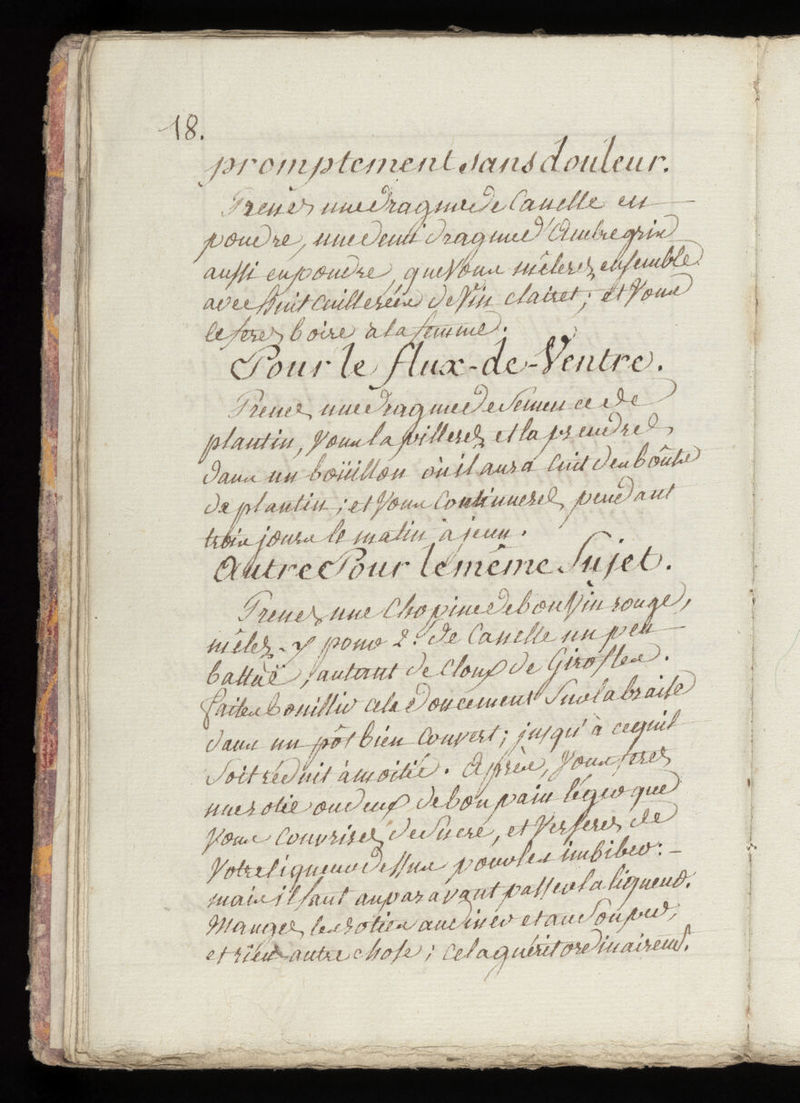 18.
promptement sans douleur.
Prenés une dragme de Canelle en
poudre, une demi dragme d'Ambre gris
aussi en poudre, que Vous mêlerez ensemble
avec huit cuillerées de Vin clairet; et Vous
le ferez boire à la femme.
Pour le flux-de-Ventre.
Prenez une dragme de Semence de
plantin, Vous la pillerez et la prendrez
dans un boüillon où il aura cuit des bouts
de plantin; et Vous continuerez pendant
trois jours le matin à jeun.
Autre Pour le même Sujet.
Prenez une Chopine de bon Vin rouge,
mêlez-y pour 2.s de Canelle un peu
battuë, autant de Cloux de Girofles.
faites bouillir cela doucement Sur la braise
dans un pôt bien Couvert; jusqu'à cequil
Soit réduit à moitié. Après, Vous ferez
une rotie ou deux de bon pain léger que
Vous Couvrirez de Sucre, et Verserez de
Votre liqueur dessus pour les imbiber: -
mais il faut auparavant passer la liqueur.
Mangez les roties au diner et au Souper,
et rien autre chose; cela guérit ordinairemt.